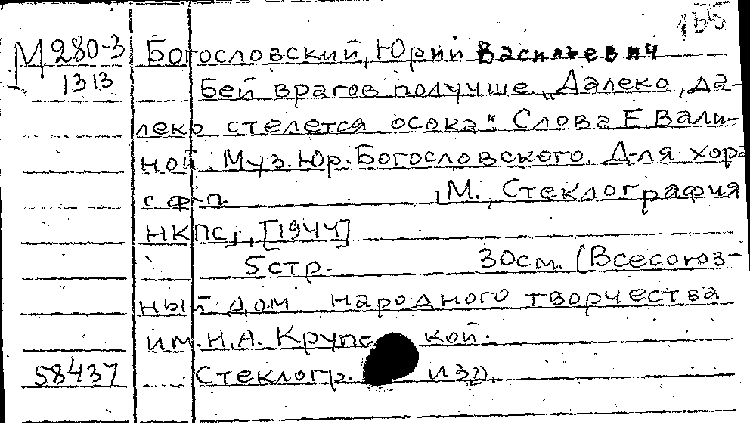 155
М 280-3 Богословский, Юрий Васильевич
1313 Бей врагов получше. „Далеко, да-
леко стелется осока". Слова Е Вали-
ной. Муз. Юр. Богословского. Для хора
с ф-п. М., Стеклография
НКПС, [1944]
5 стр. 30 см. (Всесоюз-
ный дом народного творчества
им. Н.А. Крупской.
58437 Стеклогр. изд.